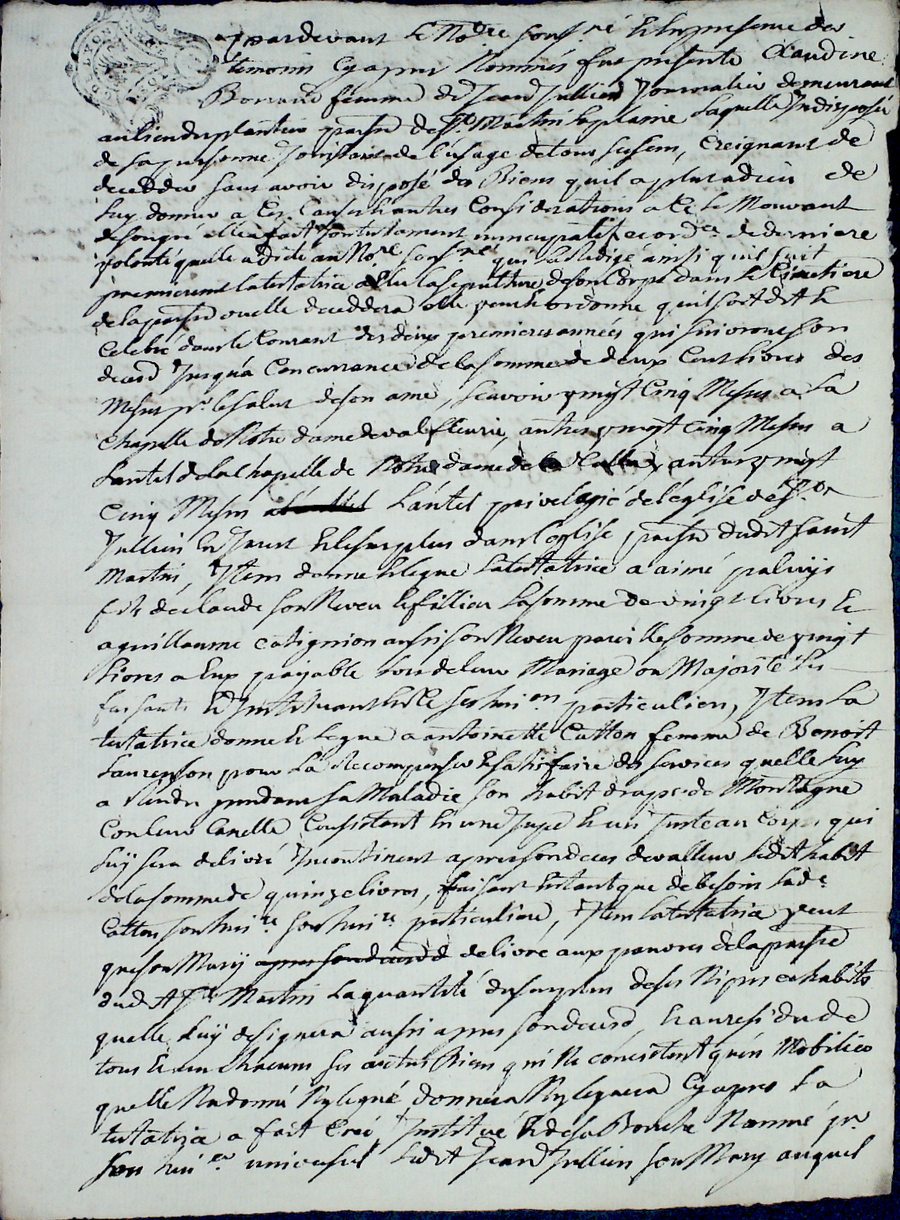 pardevant le No.re sous.né et en presence des
temoins cy apres Nommés fut presente Claudine
Bonnand femme de Jean Jullien Journalier demeurant
au lieu du plantier parsse de St. Martin laplaine laquelle Indisposée
de sa personne Jouissante de l'usage de tous ses sens, Creignant de
decedder sans avoir disposé des Biens quil a plut a dieu de
luy donner a Ces Causes et autres Considerations a Ce le Mouvant
de son gré elle a fait son testament nuncupatif et ord.ce de derniere
volonté quelle a dicté au No.re sous.né qui la Redigé ainsi quil suit
premierement la testatrice elle la sepulture de son Corps dans le Cimetiere
de la parsse ou elle deceddera elle veut et ordonne quil soit dit et
Celebré dans le Courant des deux premieres années qui suivront son
deces Jusqua Concurrance de la somme de deux Cent livres des
Messes pr. le salut de son ame, scavoir vingt Cinq Messes a la
chapelle de Notre dame de valfleurie, autres vingt Cinq Messes a
Lautel de la Chapelle de Notre dame de , autres vingt
Cinq Messes Lautel privelegié de l'église de St.
Jullien en Jarret et le surplus dans l'eglise parsse dudit saint
Martin, Item donne et legue la testatrice a aimé palluys
fils de claude son Neveu et fillieu la somme de vingt livres et
a guillaume catignion aussi son Neveu pareille somme de vingt
livres a Eux payable lors de leur Mariage ou Majorité les
faisants et Instituant ses heri.ers particuliers, Item la
testatrice donne et legue a antoinette Catton femme de Benoit
Laurenson pour la Recompenser et satisfaire des services quelle luy
a Rendu pendant sa Maladie son habit drap de Montagne
Couleur Canelle Consistant en une Jupe et un Juste au Corps, qui
luy sera delivré Incontinent apres son deces de valleur ledit habit
de la somme de quinze livres, faisant et tant que de besoin lad.e
Catton son heri.re particuliere, Item la testatrice veut
que son Mary delivre aux pauvres de la parsse
dudit St. Martin la quantité du surplus de ses Nipes et habits
quelle luy designera aussi apres son deces, et au residu de
tous et un chacuns ses autres Biens qui Ne consistent qu'en Mobilier
quelle Na donné Ny legué donnera Ny leguera Cy apres la
testatrice a fait Creé Institué et de sa Bouche Nommé pr.
son heri.er universel ledit Jean Jullien son Mary auquel